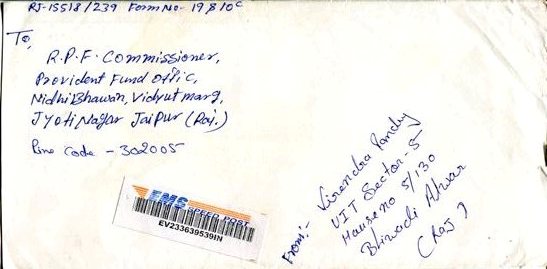 RJ-15518/239 Form No- 19 & 10C
To,
R.P.F. Commissioner,
Provident Fund Offic,
Nidhi Bhawan, Vidyut marg,
Jyoti Nagar Jaipur (Raj.)
Pine Code - 302005
EMS
SPEED POST
EV233639539IN
From:- Virendra Pandey
UIT Sector-5
House no 5/130
Bhiwadi Alwar
(Raj)